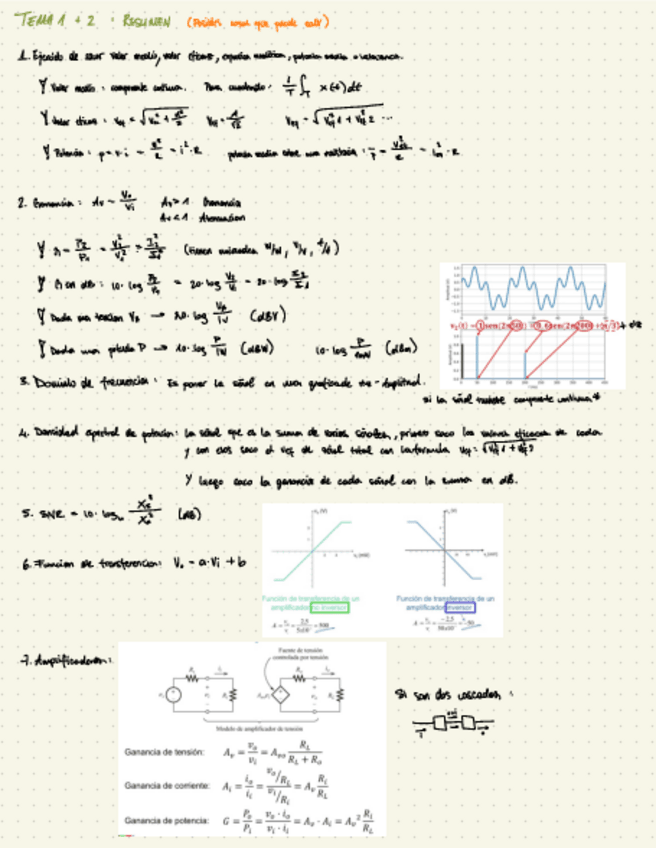 TEMA 1 + 2 : RESUMEN (Posibles cosas que puede salir)
1. Ejercicio de sacar valor medio, valor eficaz, potencia media
Valor medio: componente continua. Para cuadrado: 1/T ∫_T x(t) dt
Valor eficaz:
Potencia: p = v·i = v²/R = i²·R potencia media sobre una resistencia:
2. Ganancia: Av = Vo/Vi Av>1 Ganancia
Av<1 Atenuacion
(tienen unidades W/W, V/V, A/A)
G en dB: 10·log P2/P1 = 20·log V2/V1 = 20·log I2/I1
Dada una tension VA → 20·log VA/1V (dBV)
Dada una potencia P → 10·log P/1W (dBW) 10·log P/1mW (dBm)
3. Dominio de frecuencia: Es poner la señal en una grafica de Hz-Amplitud.
si la señal tuviese componente continua
4. Densidad espectral de potencia: la señal que es la suma de varias señales, primero saco los valores eficaces de cada
y con ellos saco el Vef de señal total con la formula
Y luego saco la ganancia de cada señal con la suma en dB.
5. SNR = 10·log (dB)
6. Funcion de transferencia: Vo = a·Vi + b
Función de transferencia de un amplificador no inversor
Función de transferencia de un amplificador inversor
7. Amplificadores:
Fuente de tensión controlada por tensión
Si son dos cascadas :
Modelo de amplificador de tensión
Ganancia de tensión: A_v = v_o/v_i = A_vo R_L/(R_L + R_o)
Ganancia de corriente: A_i = i_o/i_i = (v_o/R_L)/(v_i/R_i) = A_v R_i/R_L
Ganancia de potencia: G = P_o/P_i = (v_o · i_o)/(v_i · i_i) = A_v · A_i = A_v² R_i/R_L